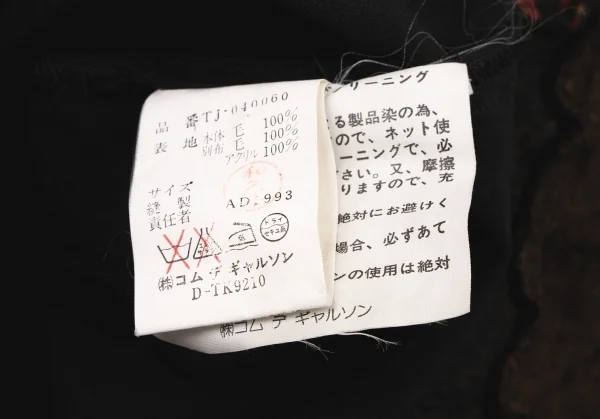 品番 TJ-040060
表地 本体 毛 100%
別布 毛 100%
アクリル 100%
サイズ
縫製 AD.1993
責任者
ドライ
セキユ系
㈱コム デ ギャルソン
D-TK9210
クリーニング
る製品染の為、
ので、ネット使
ーニングで、必
さい。又、摩擦
りますので、充
絶対にお避けく
場合、必ずあて
ンの使用は絶対
㈱コム デ ギャルソン